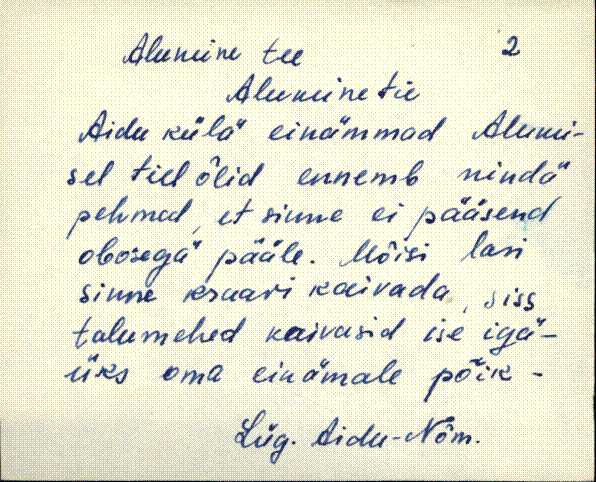 Alumine tee 2
Alumine tie
Aidu külä einämmad Alumi-
sel tiel õlid ennemb nindä
pehmed, et sinne ei pääsend
obosegä pääle. Mõisi lasi
sinne kraavi kaivada, siss
talumehed kaivasid ise igä-
üks oma einämale põik-
Lüg. Aidu-Nõm.